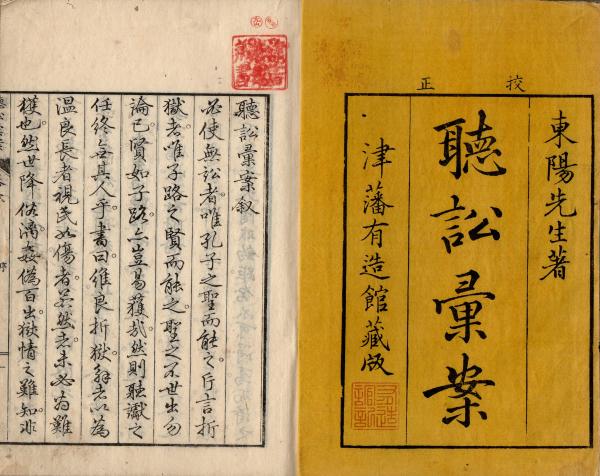 校正
東陽先生著
聽訟彙案
津藩有造館藏版
聽訟彙案叙
必使無訟者唯孔子之聖而能之片言折
獄者唯子路之賢而能之聖之不世出勿
論已賢如子路亦豈易獲哉然則聽讞之
任終無其人乎書曰維良折獄解者以為
温良長者視民如傷者若然者未必為難
獲也然世降俗澆姦僞百出獄情之難知非